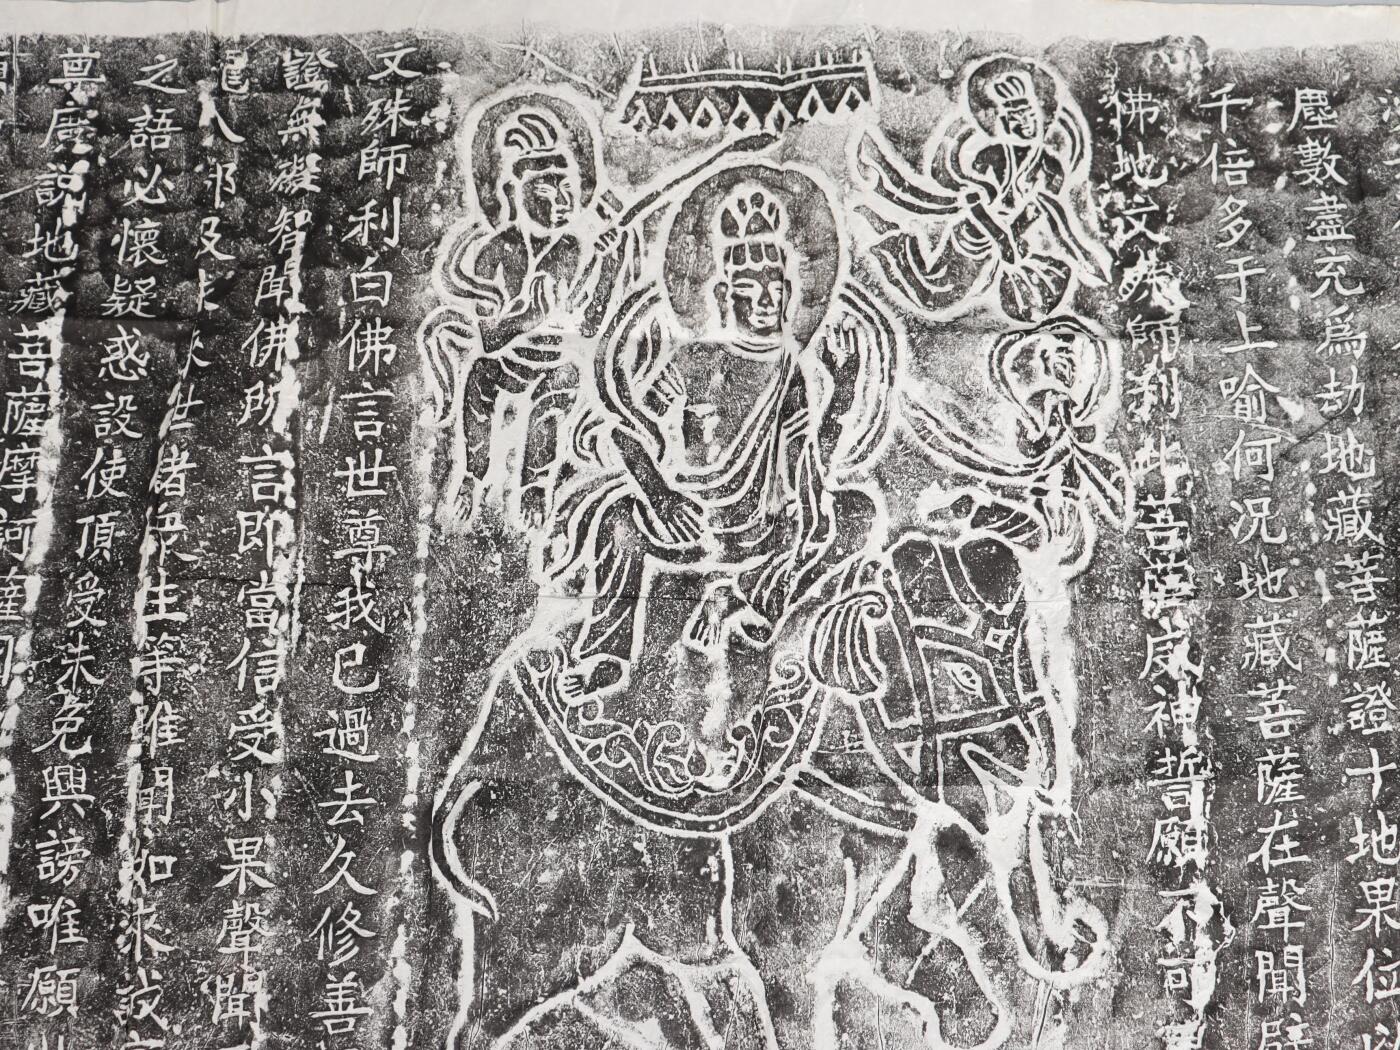 塵數盡充爲劫地藏菩薩證十地果位
千倍多于上喻何况地藏菩薩在聲聞辟
佛地文殊師利此菩薩威神誓願不可
文殊師利白佛言世尊我已過去久修善
證無礙智聞佛所言即當信受小果聲聞
龍八部及未來世諸衆生等雖聞如來誠
之語必懷疑惑設使頂受未免興謗唯願
尊廣説地藏菩薩摩訶薩因